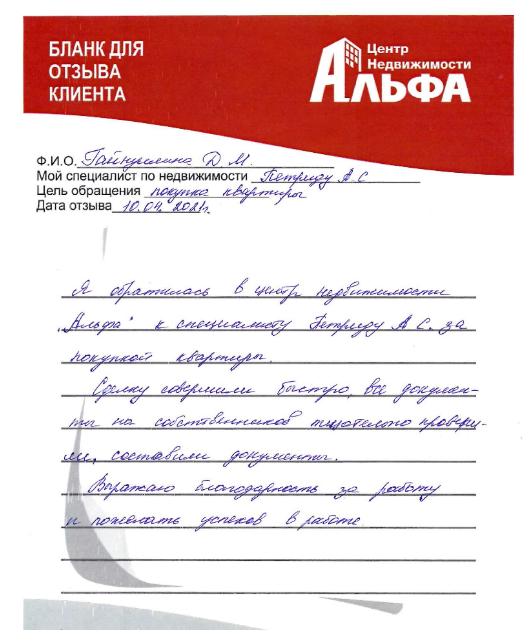 БЛАНК ДЛЯ
ОТЗЫВА
КЛИЕНТА
Центр
Недвижимости
АЛЬФА
Ф.И.О. Гайнуллина Д. М.
Мой специалист по недвижимости Петриду А С
Цель обращения покупка квартиры
Дата отзыва 10.04. 2021г.
Я обратилась в центр недвижимости
„Альфа" к специалисту Петриду А С. за
покупкой квартиры.
Сделку совершили быстро, все докумен-
ты на собственников тщательно провери-
ли, составили документы.
Выражаю благодарность за работу
и пожелать успехов в работе